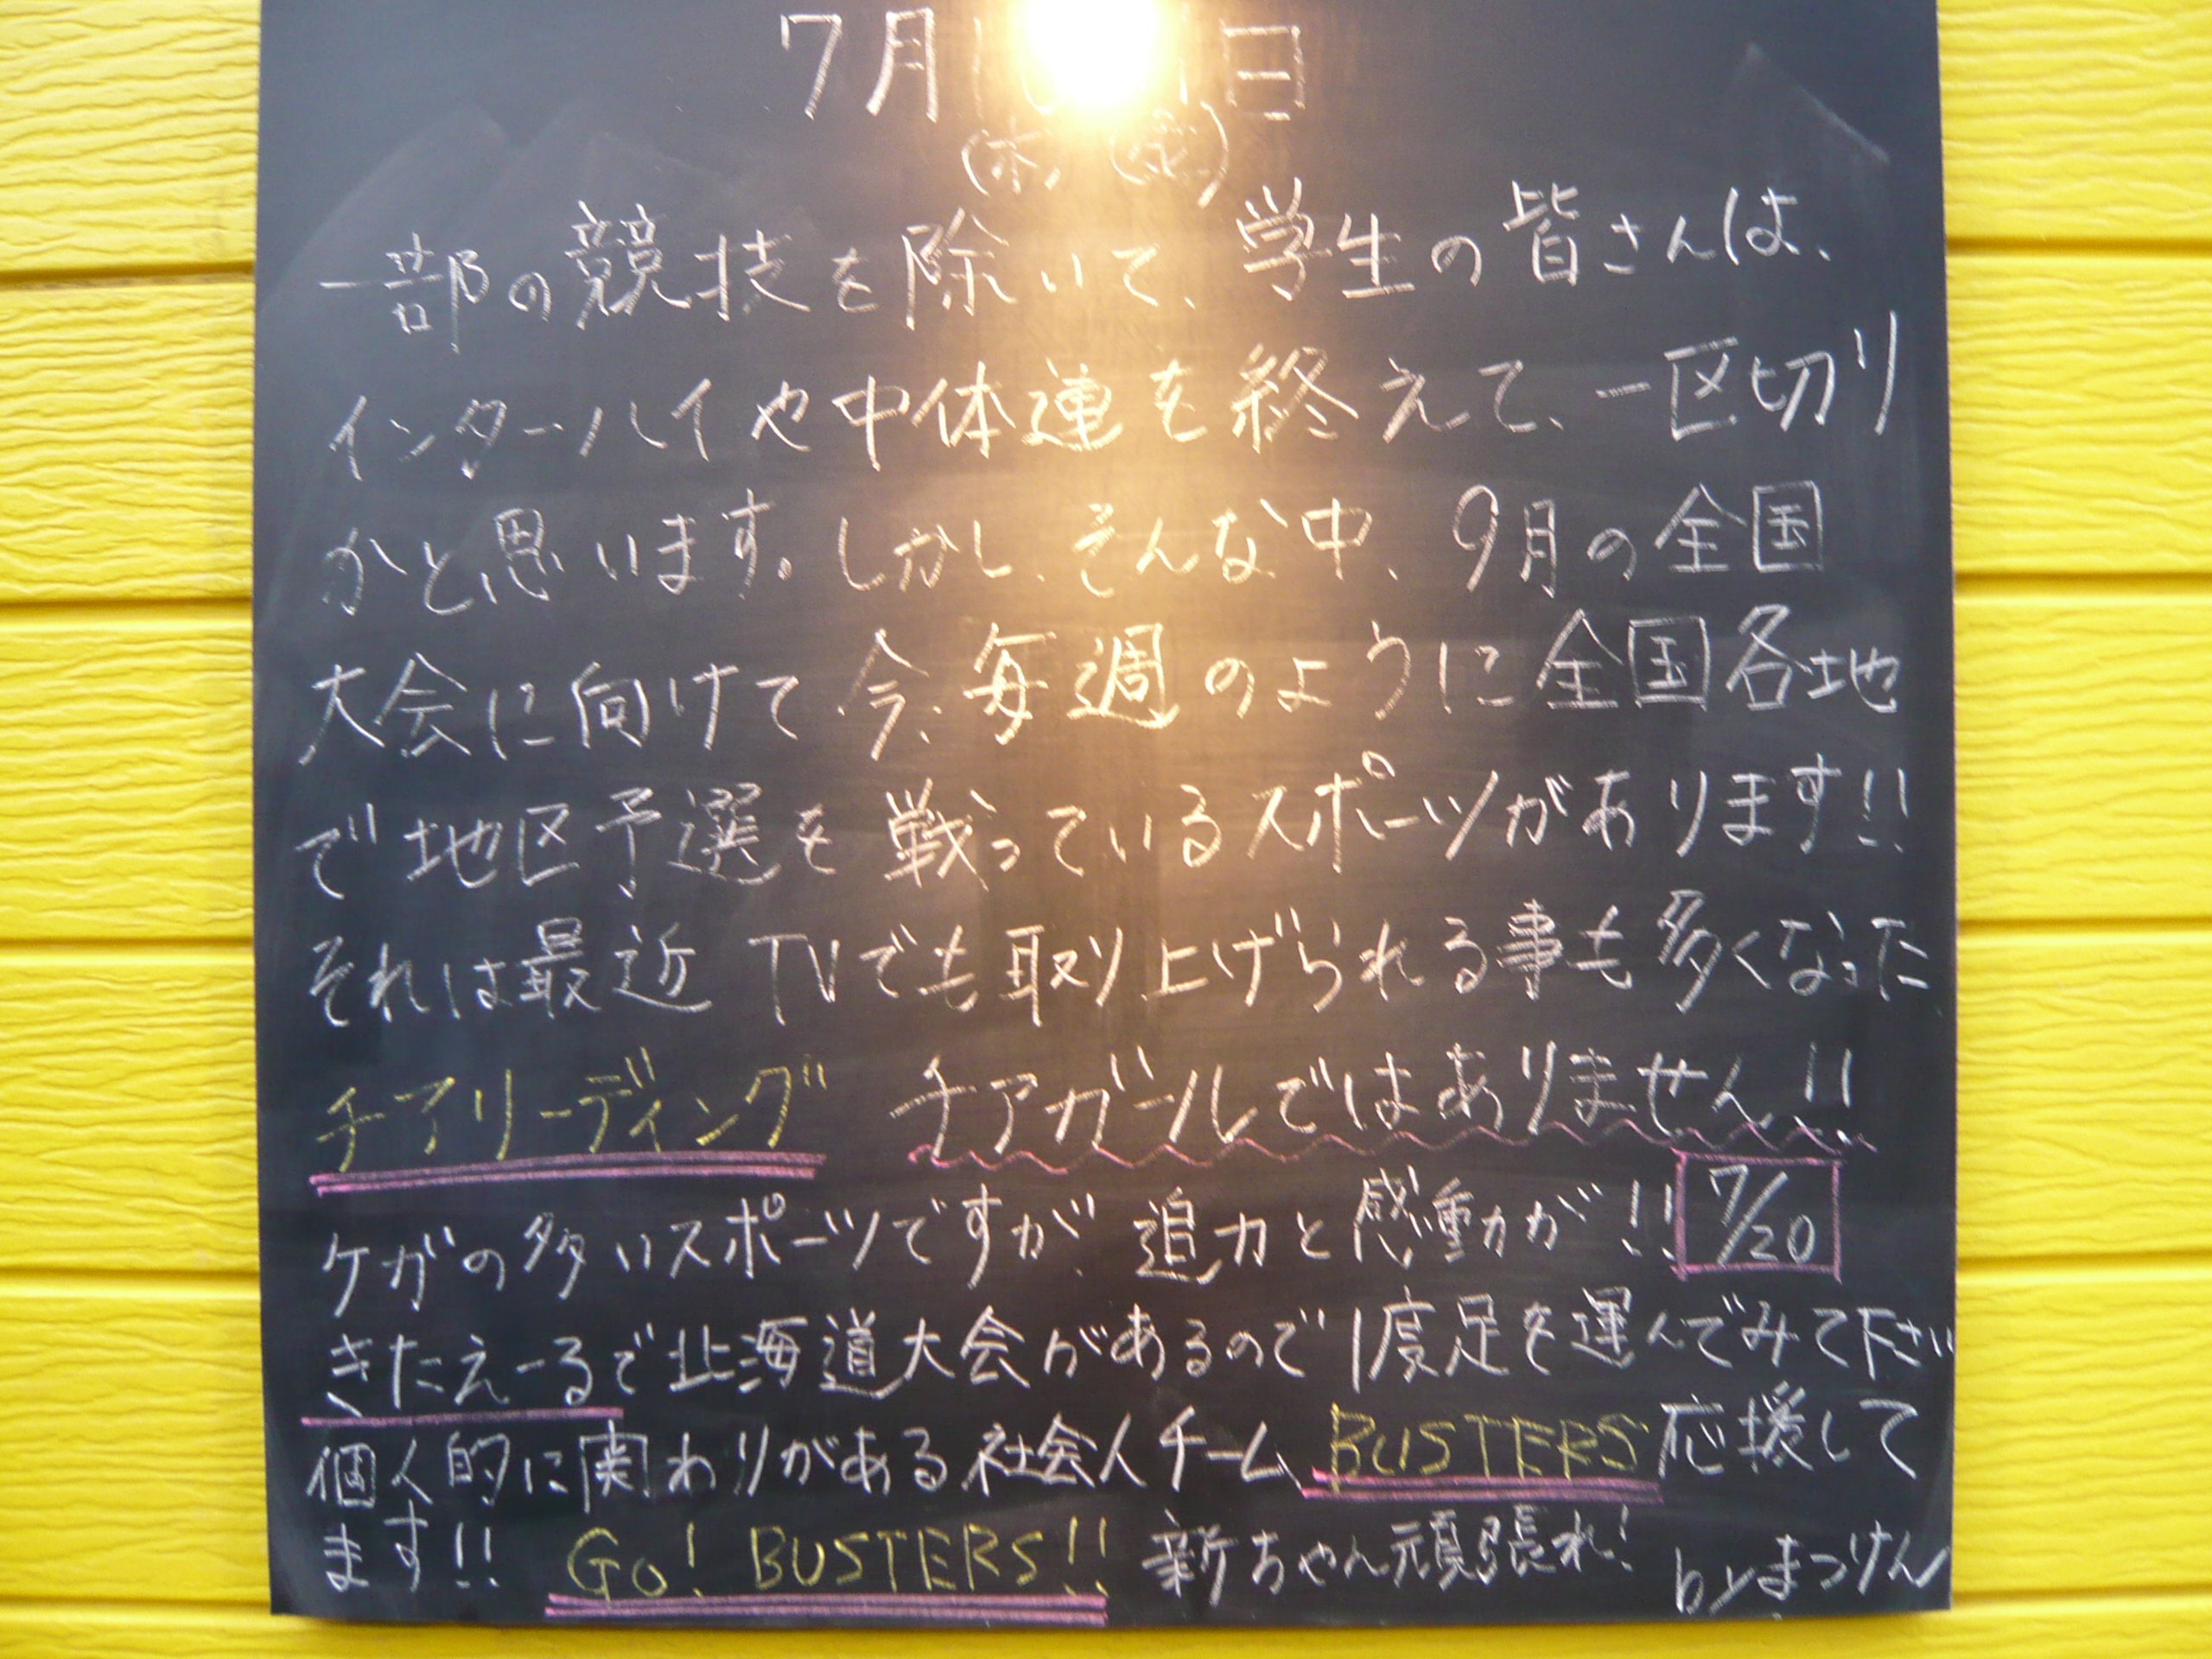 7月1 日
(木) (金)
一部の競技を除いて、学生の皆さんは、
インターハイや中体連を終えて、一区切り
かと思います。しかし、そんな中、9月の全国
大会に向けて今、毎週のように全国各地
で地区予選を戦っているスポーツがあります!!
それは最近 TVでも取り上げられる事も多くなった
チアリーディング チアガールではありません!!
ケガの多いスポーツですが、迫力と感動が!! 7/20
きたえーるで北海道大会があるので1度足を運んでみて下さい
個人的に関わりがある社会人チーム BUSTERS 応援して
ます!! Go! BUSTERS!! 新ちゃん頑張れ! byまつけん